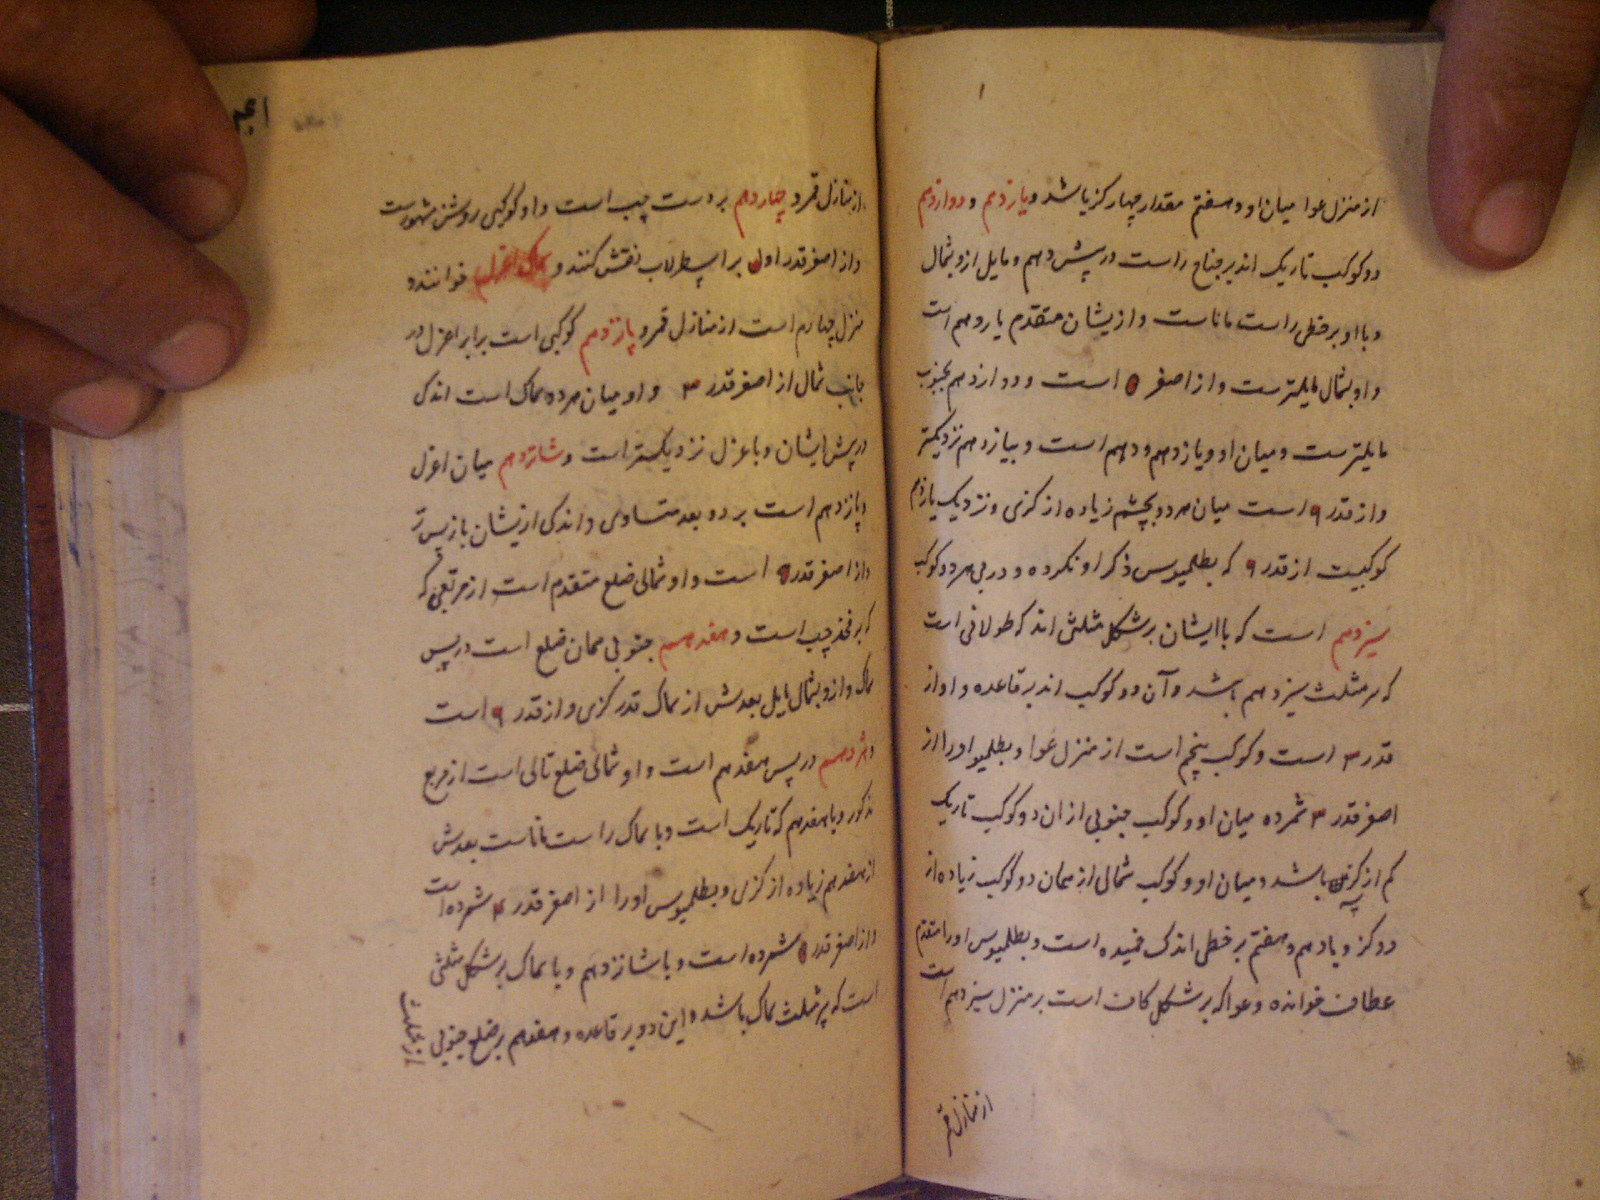 از منزل عوا میان او و هفتم مقدار چهار کز باشد و یازدهم و دوازدهم
دو کوکب تاریک اند بر جناح راست در پیش دهم و مایل ازو بشمال
و با او بر خطی راست ماناست و ازیشان متقدم یازدهم است
و او بشمال مایلترست و از اصغر ۵ است و دوازدهم بجنوب
مایلترست و میان او و یازدهم و دهم است و بیازدهم نزدیکتر
و از قدر ۶ است میان هر دو بچشم زیاده از کزی و نزدیک یازدهم
کوکبیست از قدر ۶ که بطلمیوس ذکر او نکرده و در پی هر دو کوکب
سیزدهم است که با ایشان بر شکل مثلثی اند که طولانی است
که سر مثلث سیزدهم باشد و آن دو کوکب اند بر قاعده و او از
قدر ۳ است و کوکب پنجم است از منزل عوا و بطلمیوس او را از
اصغر قدر ۳ شمرده میان او و کوکب جنوبی از ان دو کوکب تاریک
کم از کزی باشد و میان او و کوکب شمالی از همان دو کوکب زیاده از
دو کز و با دهم و هفتم بر خطی اندک خمیده است و بطلمیوس او را متقدم
عطاف خوانده و عوا که بر شکل کاف است بر منزل سیزدهم است
از منازل قمر
از منازل قمر و چهاردهم بر دست چپ است و او کوکبی روشن مشهورست
و از اصغر قدر اول بر اسطرلاب نقش کنند و سماک اعزل خوانند و
منزل چهاردهم است از منازل قمر و پانزدهم کوکبی است برابر اعزل در
جانب شمال از اصغر قدر ۳ و او میان هر ده سماک است اندکی
در پیش ایشان و با عزل نزدیکتر است و شانزدهم میان اعزل
و پانزدهم است بر دو بعد متساوی و اندکی ازیشان بازپس‌تر
و از اصغر قدر ۵ است و او شمالی ضلع متقدم است از مربعی که
که بر فخذ چپ است و هفدهم جنوبی همان ضلع است در پس
سماک و ازو بشمال مایل بعدش از سماک قدر کزی و از قدر ۶ است
و هژدهم در پس هفدهم است و او شمالی ضلع تالی است از مربع
مذکور و با هفدهم که تاریک است و با سماک راست ماناست بعدش
از هفدهم زیاده از کزی و بطلمیوس او را از اصغر قدر ۴ شمرده است
و از اصغر قدر ۵ شمرده است و با شانزدهم و با سماک بر شکل مثلثی
است که سر مثلث سماک باشد و این دو بر قاعده و هفدهم بر ضلع جنوبی